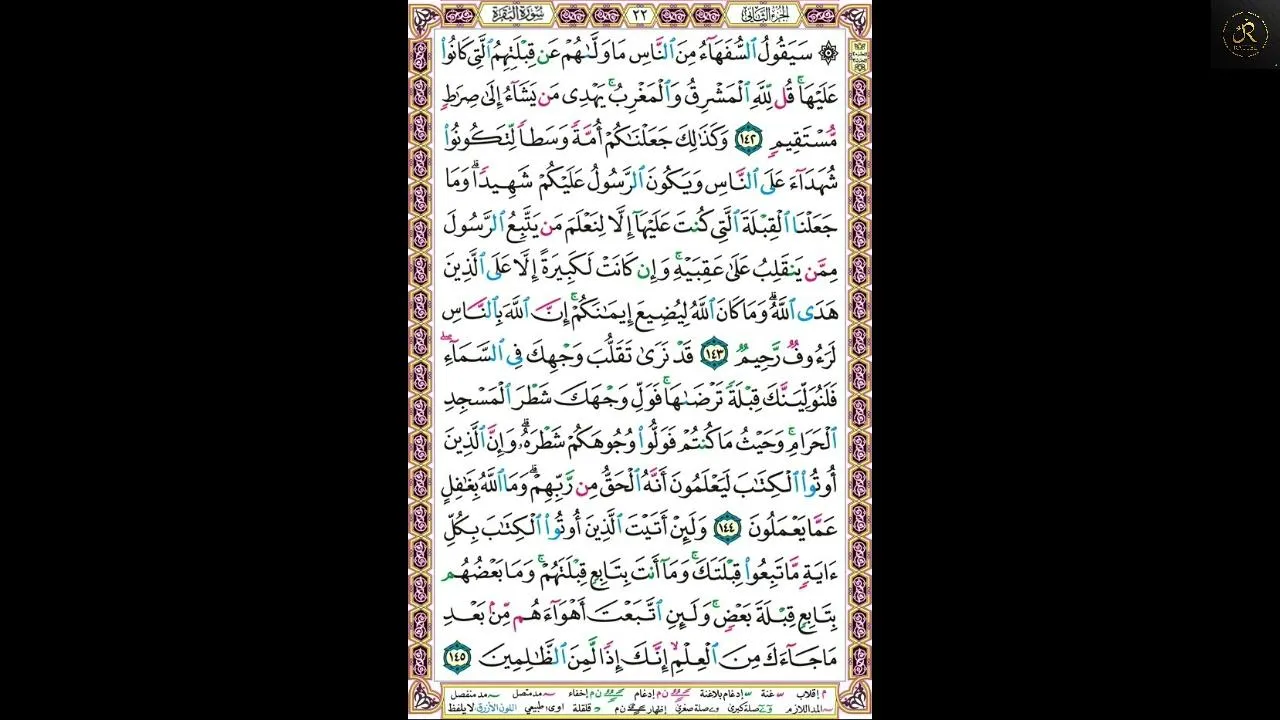 الجزء الثاني
٢٢
سورة البقرة
۞ سَيَقُولُ ٱلسُّفَهَآءُ مِنَ ٱلنَّاسِ مَا وَلَّىٰهُمْ عَن قِبْلَتِهِمُ ٱلَّتِى كَانُوا۟
عَلَيْهَا ۚ قُل لِّلَّهِ ٱلْمَشْرِقُ وَٱلْمَغْرِبُ ۚ يَهْدِى مَن يَشَآءُ إِلَىٰ صِرَٰطٍ
مُّسْتَقِيمٍ ١٤٢ وَكَذَٰلِكَ جَعَلْنَٰكُمْ أُمَّةً وَسَطًا لِّتَكُونُوا۟
شُهَدَآءَ عَلَى ٱلنَّاسِ وَيَكُونَ ٱلرَّسُولُ عَلَيْكُمْ شَهِيدًا ۗ وَمَا
جَعَلْنَا ٱلْقِبْلَةَ ٱلَّتِى كُنتَ عَلَيْهَآ إِلَّا لِنَعْلَمَ مَن يَتَّبِعُ ٱلرَّسُولَ
مِمَّن يَنقَلِبُ عَلَىٰ عَقِبَيْهِ ۚ وَإِن كَانَتْ لَكَبِيرَةً إِلَّا عَلَى ٱلَّذِينَ
هَدَى ٱللَّهُ ۗ وَمَا كَانَ ٱللَّهُ لِيُضِيعَ إِيمَٰنَكُمْ ۚ إِنَّ ٱللَّهَ بِٱلنَّاسِ
لَرَءُوفٌ رَّحِيمٌ ١٤٣ قَدْ نَرَىٰ تَقَلُّبَ وَجْهِكَ فِى ٱلسَّمَآءِ ۖ
فَلَنُوَلِّيَنَّكَ قِبْلَةً تَرْضَىٰهَا ۚ فَوَلِّ وَجْهَكَ شَطْرَ ٱلْمَسْجِدِ
ٱلْحَرَامِ ۚ وَحَيْثُ مَا كُنتُمْ فَوَلُّوا۟ وُجُوهَكُمْ شَطْرَهُۥ ۗ وَإِنَّ ٱلَّذِينَ
أُوتُوا۟ ٱلْكِتَٰبَ لَيَعْلَمُونَ أَنَّهُ ٱلْحَقُّ مِن رَّبِّهِمْ ۗ وَمَا ٱللَّهُ بِغَٰفِلٍ
عَمَّا يَعْمَلُونَ ١٤٤ وَلَئِنْ أَتَيْتَ ٱلَّذِينَ أُوتُوا۟ ٱلْكِتَٰبَ بِكُلِّ
ءَايَةٍ مَّا تَبِعُوا۟ قِبْلَتَكَ ۚ وَمَآ أَنتَ بِتَابِعٍ قِبْلَتَهُمْ ۚ وَمَا بَعْضُهُم
بِتَابِعٍ قِبْلَةَ بَعْضٍ ۚ وَلَئِنِ ٱتَّبَعْتَ أَهْوَآءَهُم مِّنۢ بَعْدِ
مَا جَآءَكَ مِنَ ٱلْعِلْمِ ۙ إِنَّكَ إِذًا لَّمِنَ ٱلظَّٰلِمِينَ ١٤٥
م إقلاب غنة إدغام بلاغنة ن م إدغام ن م إخفاء مد متصل مد منفصل
المد اللازم صلة كبرى صلة صغرى إظهار ن م قلقلة طبيعي اللون الأزرق لا يلفظ